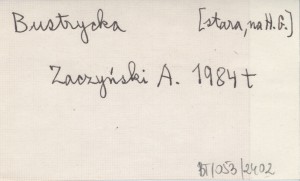 Bustrycka [stara, na H.G.]
Zaczyński A. 1984 t
BT/053/2402